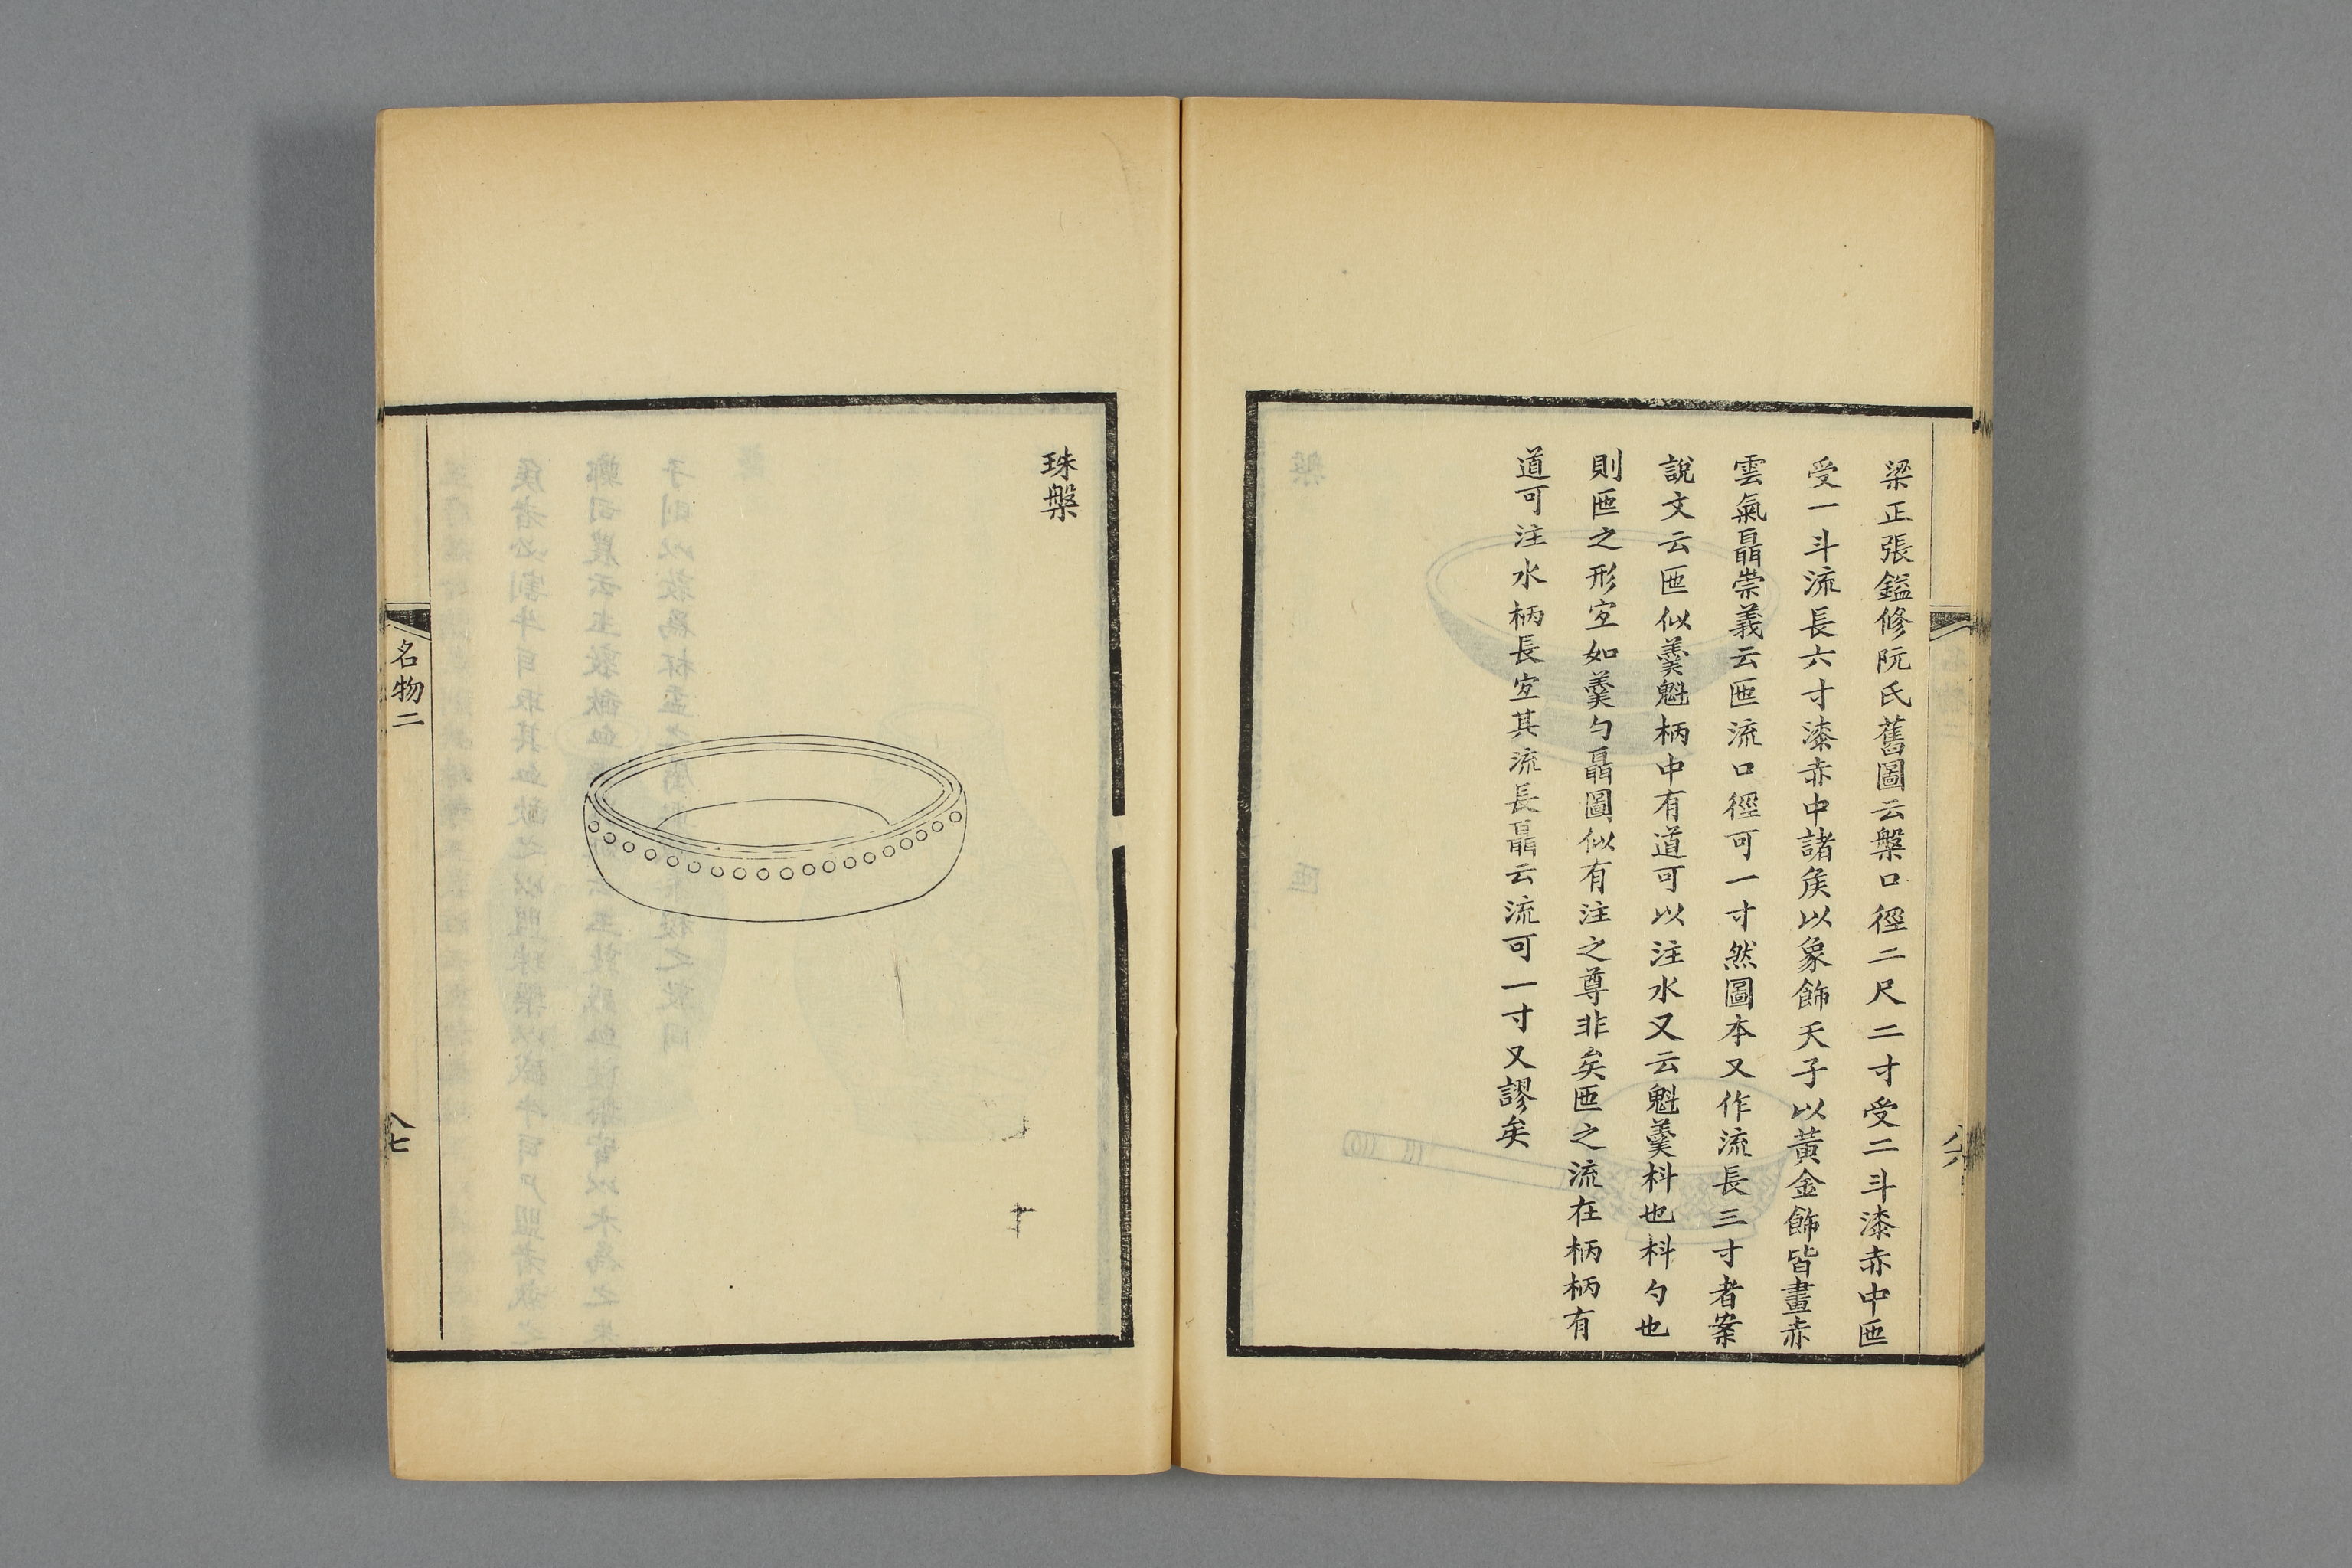 梁正張鎰修阮氏舊圖云槃口徑二尺二寸受二斗漆赤中匜
受一斗流長六寸漆赤中諸矦以象飾天子以黃金飾皆畫赤
雲氣聶崇義云匜流口徑可一寸然圖本又作流長三寸者案
說文云匜似羹魁柄中有道可以注水又云魁羹枓也枓勺也
則匜之形宐如羹勺聶圖似有注之尊非矣匜之流在柄柄有
道可注水柄長宐其流長聶云流可一寸又謬矣
珠槃
名物二
八七